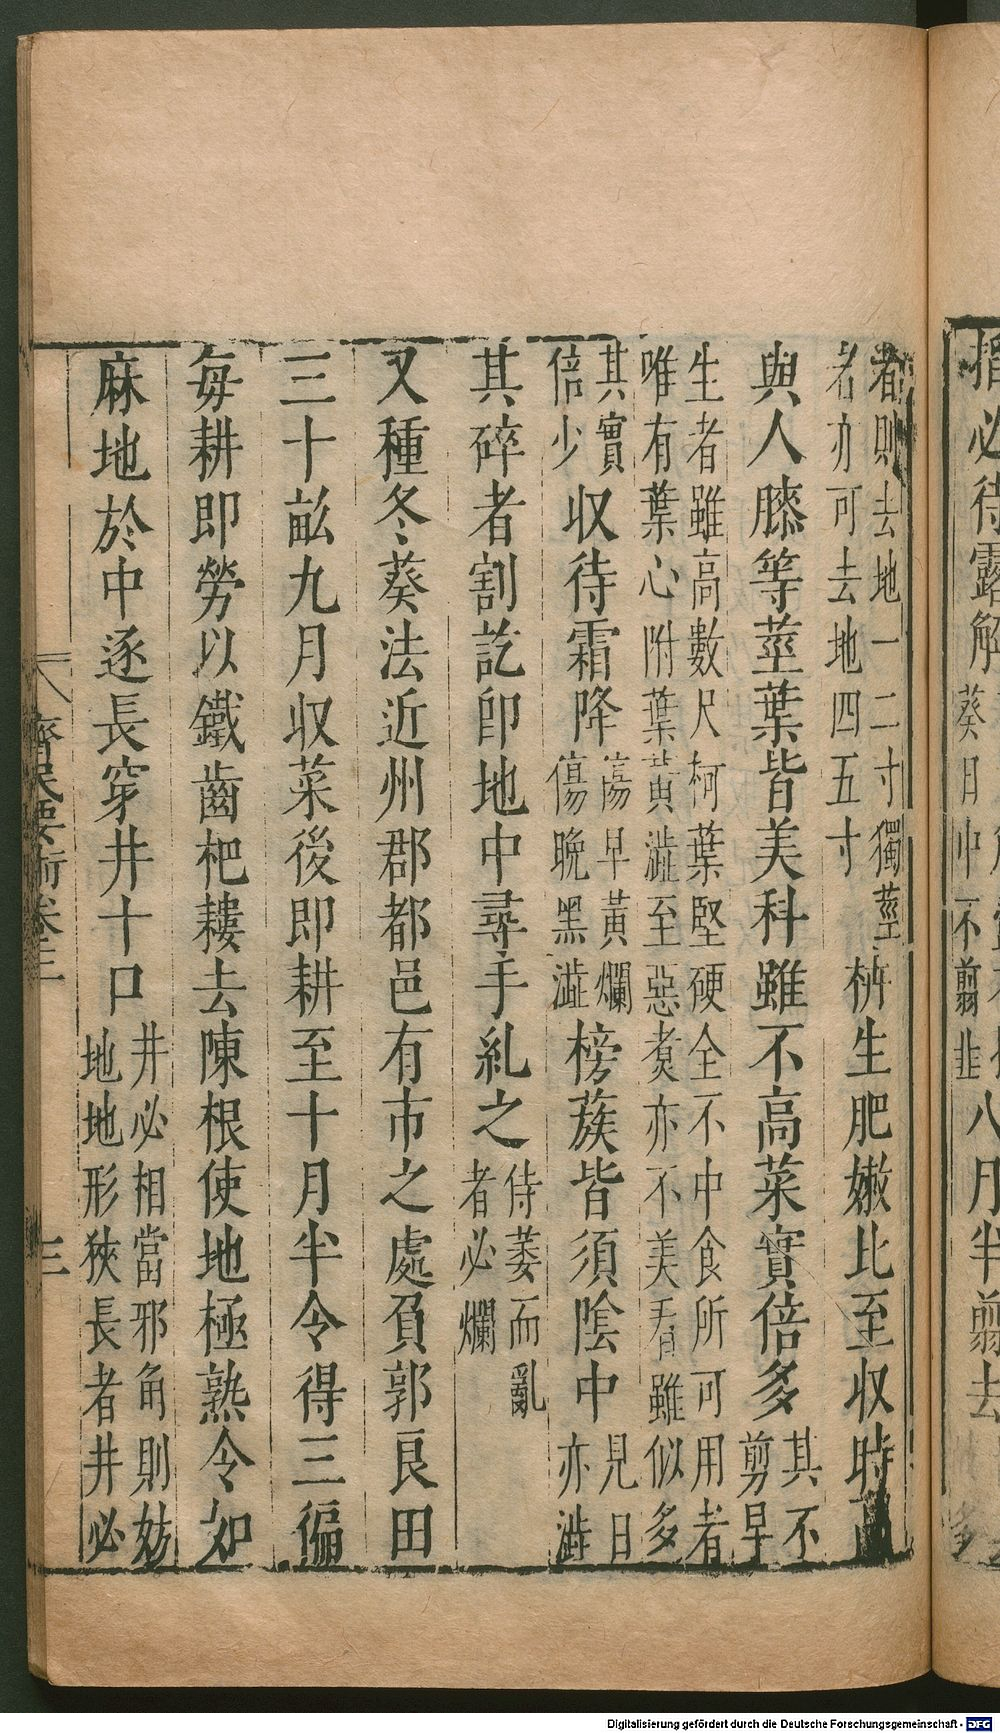 必待露解葵日中不翦韭八月半翦去
者則去地一二寸獨莖
者亦可去地四五寸
枿生肥嫩比至収時
與人膝等莖葉皆美科雖不高菜實倍多
其不
剪早
生者雖高數尺柯葉堅硬全不中食所可用者
唯有葉心附葉黃澁至惡煑亦不美看雖似多
其實
倍少
収待霜降
傷早黃爛
傷晚黑澁
榜蔟皆須陰中
見日
亦澁
其碎者割訖卽地中尋手糺之
待萎而亂
者必爛
又種冬葵法近州郡都邑有市之處負郭良田
三十畝九月収菜後即耕至十月半令得三徧
每耕即勞以鐵齒杷耬去陳根使地極熟令如
麻地於中逐長穿井十口
井必相當邪角則妨
地地形狹長者井必
齊民要術卷三
三
Digitalisierung gefördert durch die Deutsche Forschungsgemeinschaft - DFG